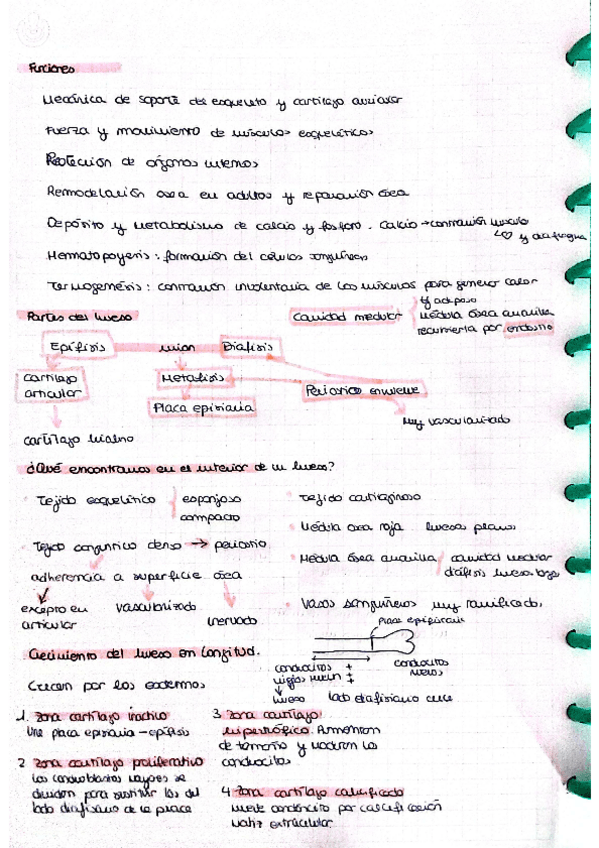 Funciones
Mecánica de soporte del esqueleto y cartílago auxiliar
Fuerza y movimiento de músculos esqueléticos
Protección de órganos internos
Remodelación ósea en adultos y reparación ósea
Depósito y metabolismo de calcio y fosforo. Calcio → contracción músculo
y diafragma
Hematopoyesis: formación del células sanguíneas
Termogénesis: contracción involuntaria de los músculos para generar calor
Partes del hueso
Cavidad medular
tj adiposo
Médula ósea amarilla
recubierta por endostio
Epífisis unión Diáfisis
Cartílago articular
Metáfisis
Periostio envuelve
Placa epifisiaria
Muy vascularizado
cartílago hialino
¿Qué encontramos en el interior de un hueso?
Tejido esquelético
esponjoso
compacto
Tejido cartilaginoso
Médula ósea roja huesos planos
Tejido conjuntivo denso → periostio
Médula ósea amarilla
cavidad medular
diáfisis hueso largo
adherencia a superficie ósea
excepto en articular
vascularizado
inervado
Vasos sanguíneos muy ramificados
placa epifisiaria
Crecimiento del hueso en longitud.
Crecen por los extremos
condrocitos
viejos mueren
hueso
condrocitos nuevos
lado diafisiario crece
1. Zona cartílago inactivo
Une placa epifisiaria - epífisis
2 Zona cartílago proliferativo
Los condroblastos mayores se
dividen para sustituir los del
lado diafisiario de la placa
3 Zona cartílago
hipertrófico. Aumentan
de tamaño y maduran los
condrocitos
4 Zona cartílago calcificado
muere condrocito por calcificación
matriz extracelular